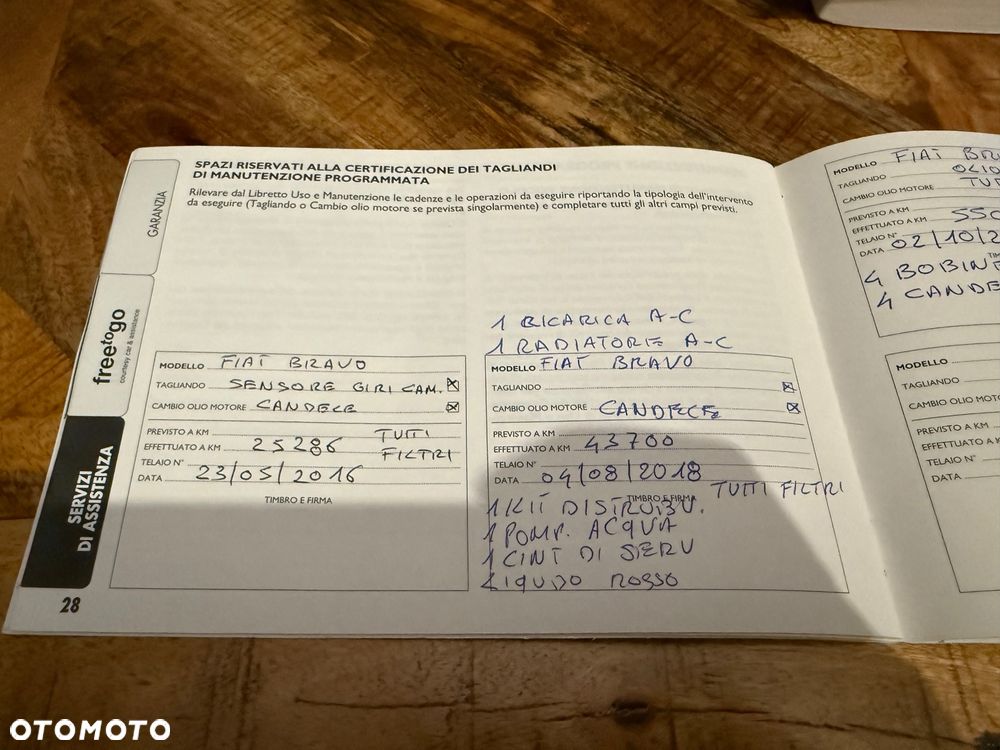 SPAZI RISERVATI ALLA CERTIFICAZIONE DEI TAGLIANDI
DI MANUTENZIONE PROGRAMMATA
Rilevare dal Libretto Uso e Manutenzione le cadenze e le operazioni da eseguire riportando la tipologia dell'intervento
da eseguire (Tagliando o Cambio olio motore se prevista singolarmente) e completare tutti gli altri campi previsti.
GARANZIA
freetogo
courtesy car & assistance
SERVIZI
DI ASSISTENZA
MODELLO FIAT BRAVO
TAGLIANDO SENSORE GIRI CAM. X
CAMBIO OLIO MOTORE CANDELE X
PREVISTO A KM TUTTI
EFFETTUATO A KM 25286 FILTRI
TELAIO N°
DATA 23/05/2016
TIMBRO E FIRMA
1 RICARICA A-C
1 RADIATORE A-C
MODELLO FIAT BRAVO
TAGLIANDO X
CAMBIO OLIO MOTORE CANDELE X
PREVISTO A KM
EFFETTUATO A KM 43700
TELAIO N°
DATA 04/08/2018
TIMBRO E FIRMA TUTTI FILTRI
1 KIT DISTRIBU.
1 POMP. ACQUA
1 CINT DI SERV
LIQUIDO ROSSO
28
MODELLO FIAT BRA
TAGLIANDO OLIO
CAMBIO OLIO MOTORE TUT
PREVISTO A KM
EFFETTUATO A KM 550
TELAIO N°
DATA 02/10/2
TIM
4 BOBINE
4 CANDE
MODELLO
TAGLIANDO
CAMBIO OLIO MOTO
PREVISTO A KM
EFFETTUATO A K
TELAIO N°
DATA
OTOMOTO